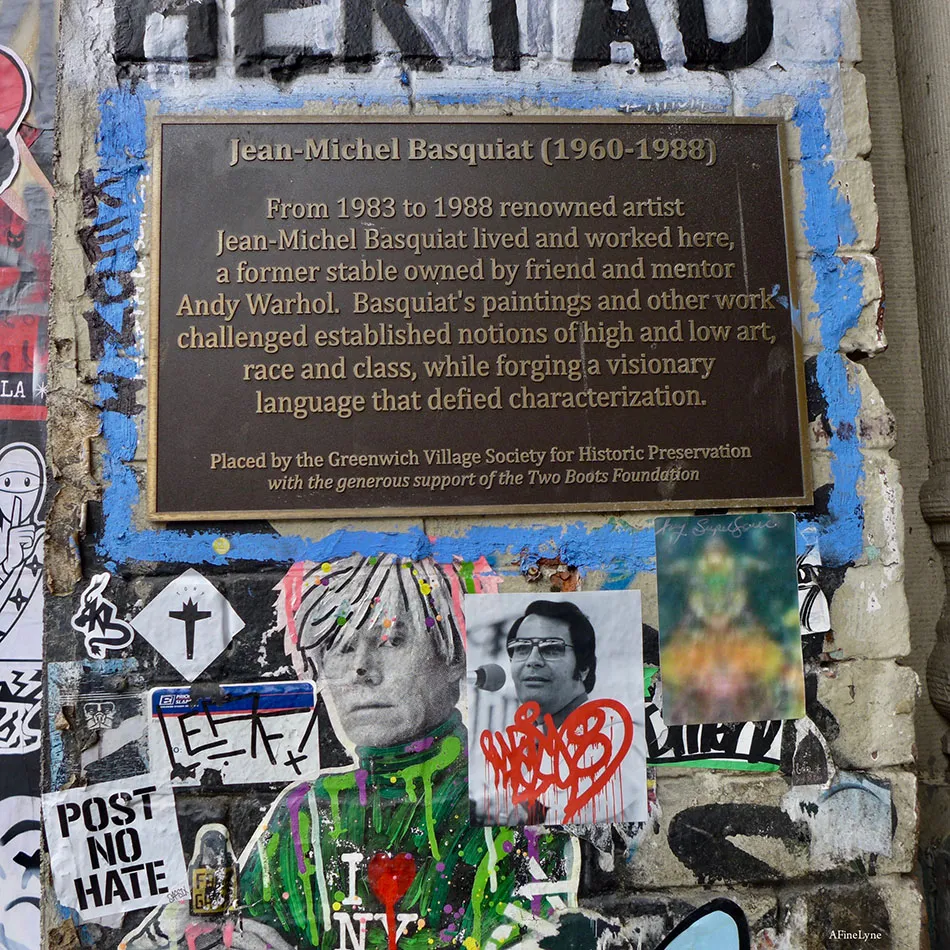 Jean-Michel Basquiat (1960-1988)
From 1983 to 1988 renowned artist
Jean-Michel Basquiat lived and worked here,
a former stable owned by friend and mentor
Andy Warhol. Basquiat's paintings and other work
challenged established notions of high and low art,
race and class, while forging a visionary
language that defied characterization.
Placed by the Greenwich Village Society for Historic Preservation
with the generous support of the Two Boots Foundation
LA
POST
NO
HATE
I
NY
AFineLyne